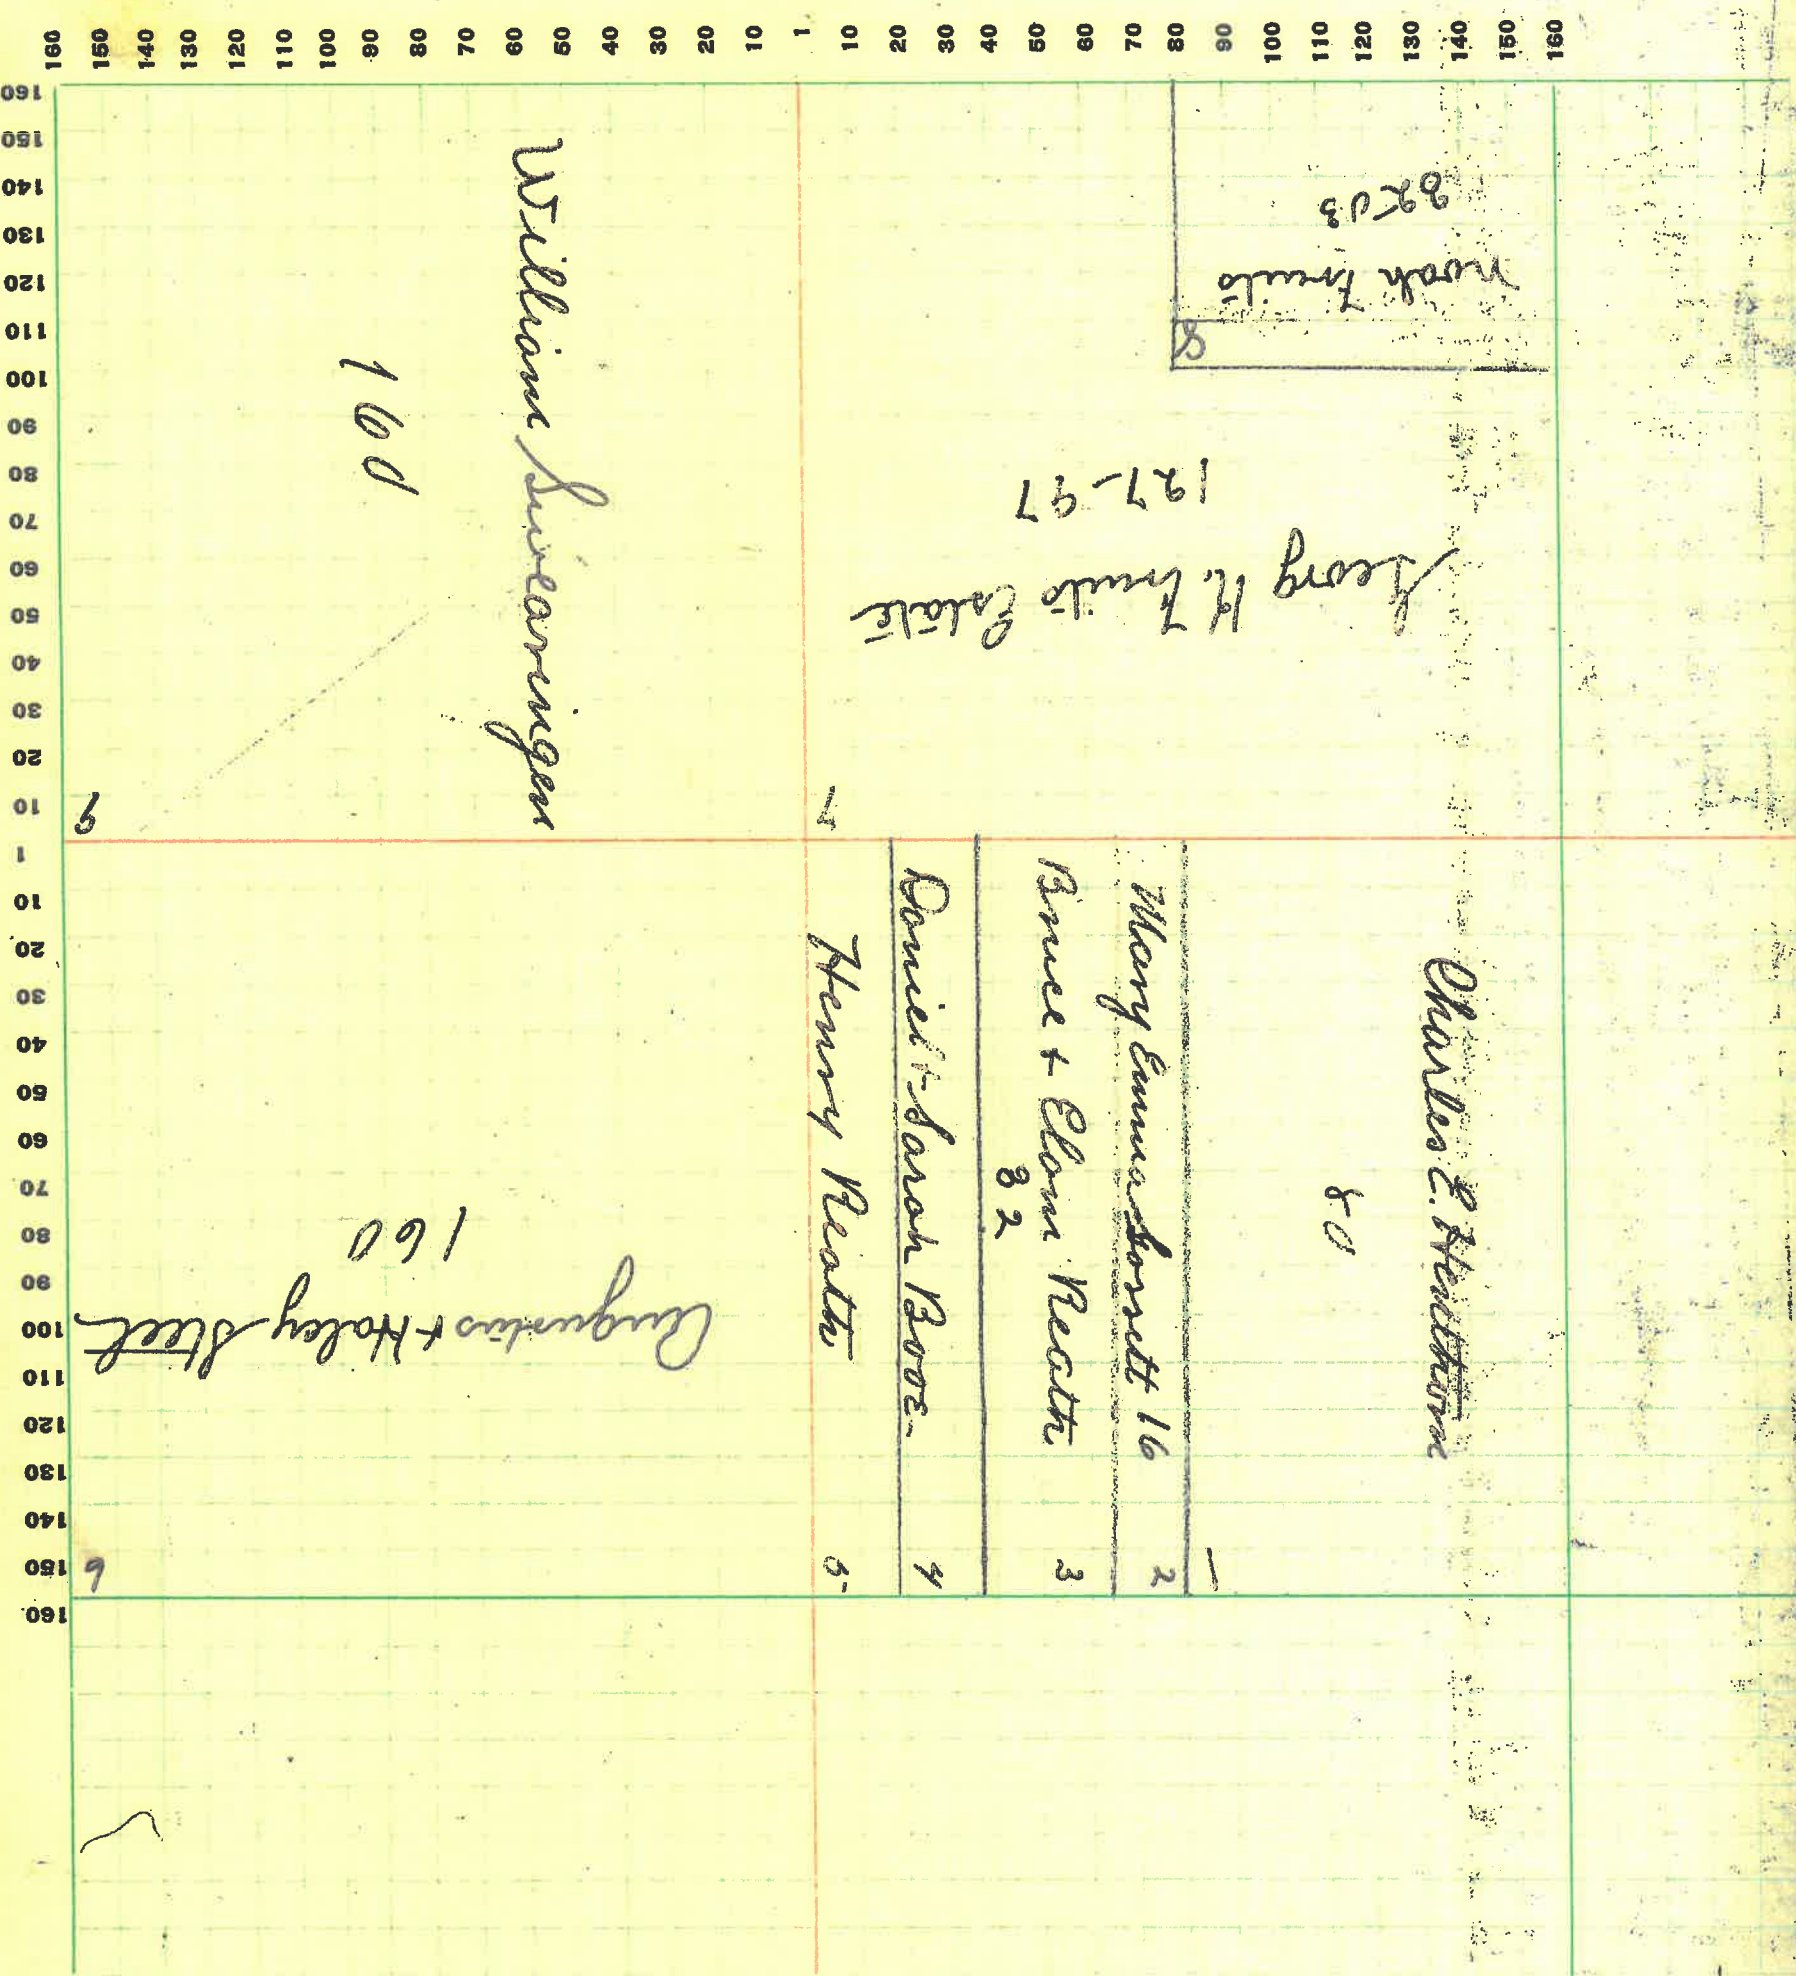 160 150 140 130 120 110 100 90 80 70 60 50 40 30 20 10 1 10 20 30 40 50 60 70 80 90 100 110 120 130 140 150 160
160
150
140
130
120
110
100
90
80
70
60
50
40
30
20
10
1
10
20
30
40
50
60
70
80
90
100
110
120
130
140
150
160
William Swearingen
160
9
Noah Fruits
32-03
8
Georg H. Fruits Estate
127-97
7
Charles E. Henthorn
80
1
Mary Emma 16
2
Bruce + Reath
32
3
Daniel + Sarah Booe
4
Henry Reath
5
Augustus + Haley Steel
160
6